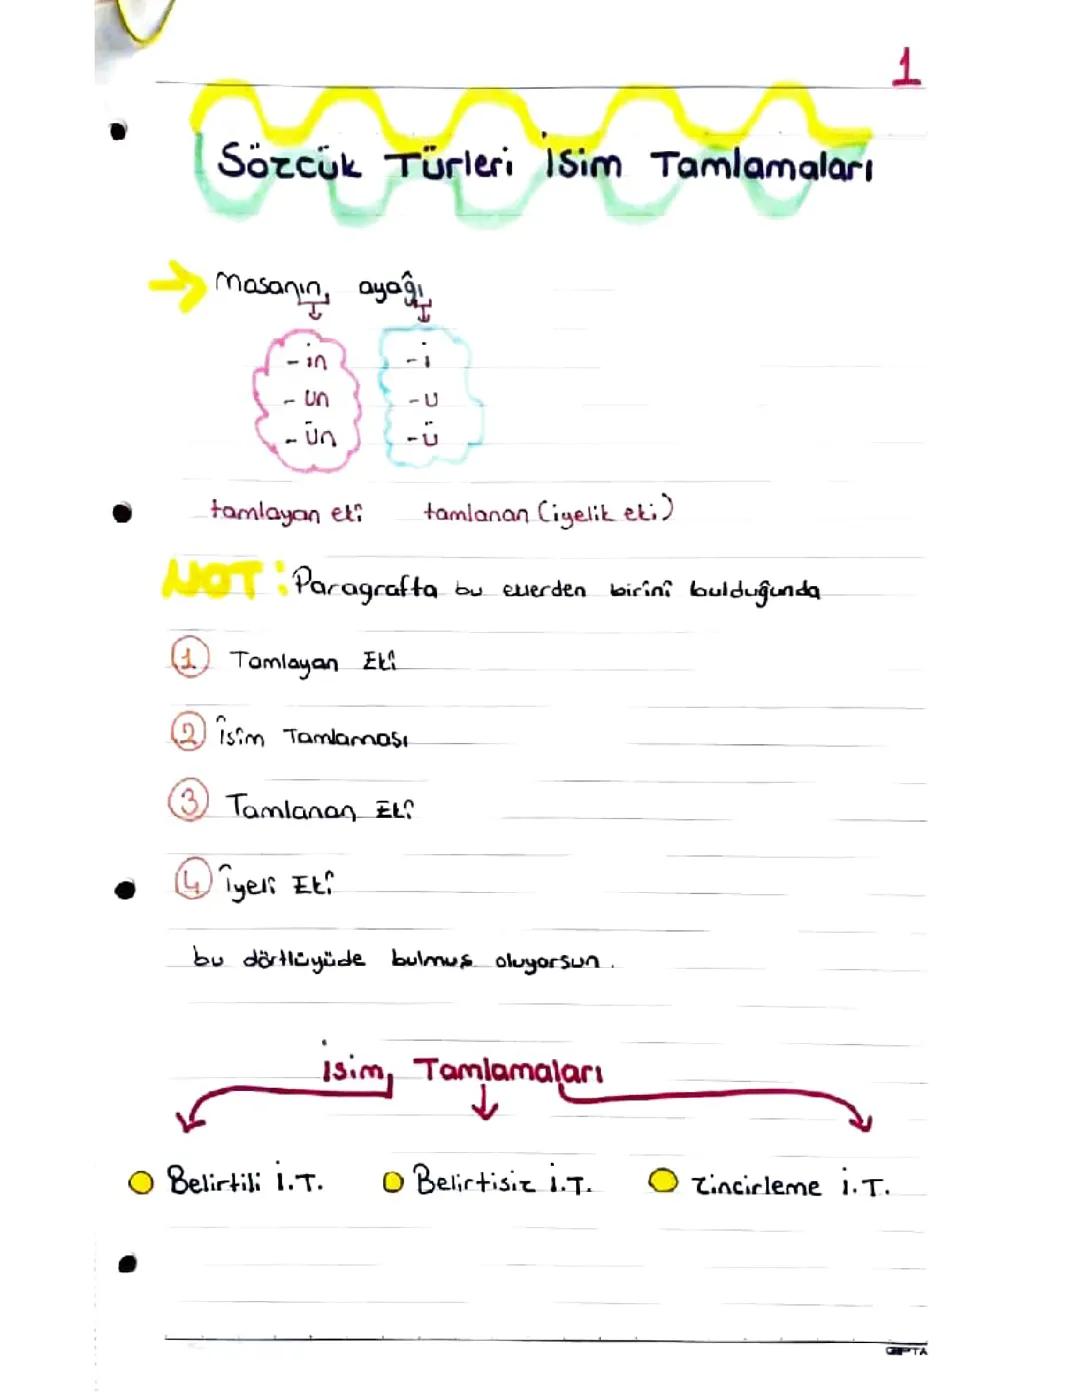 1
Sözcük Türleri İsim Tamlamaları
Masanın ayağı
-in -i
-un -u
-ün -ü
tamlayan eki tamlanan (iyelik eki)
NOT: Paragrafta bu eklerden birini bulduğunda
1 Tamlayan Eki
2 İsim Tamlaması
3 Tamlanan Eki
4 İyeli Eki
bu dörtlüyüde bulmuş oluyorsun.
İsim Tamlamaları
Belirtili İ.T. Belirtisiz İ.T. Zincirleme İ.T.
GIPTA